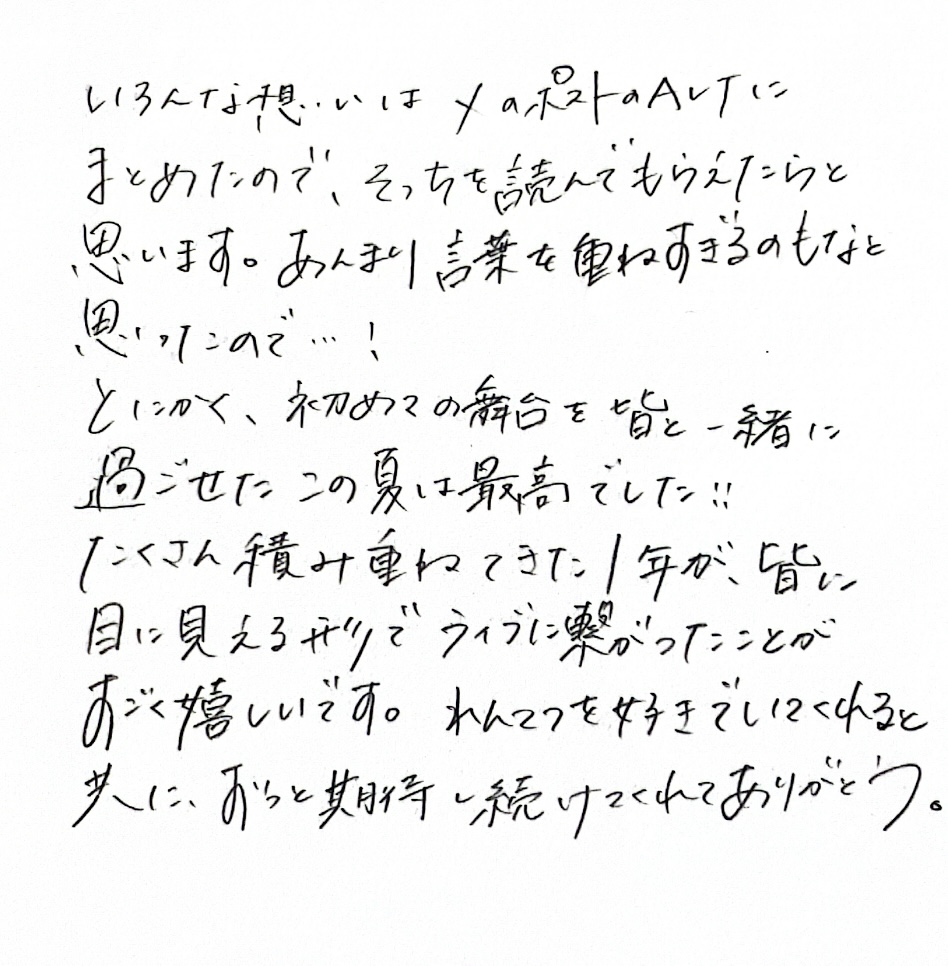 いろんな想いは XのポストのALTに
まとめたので、そっちを読んでもらえたらと
思います。あんまり言葉を重ねすぎるのもなと
思ったので…!
とにかく、初めての舞台を皆と一緒に
過ごせたこの夏は最高でした!!
たくさん積み重ねてきた1年が、皆に
目に見える形でライブに繋がったことが
すごく嬉しいです。れんてつを好きでいてくれると
共に、ずっと期待し続けてくれてありがとう。